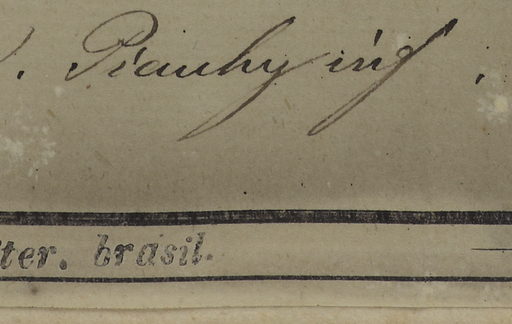 . Piauhy inf.
iter. brasil.